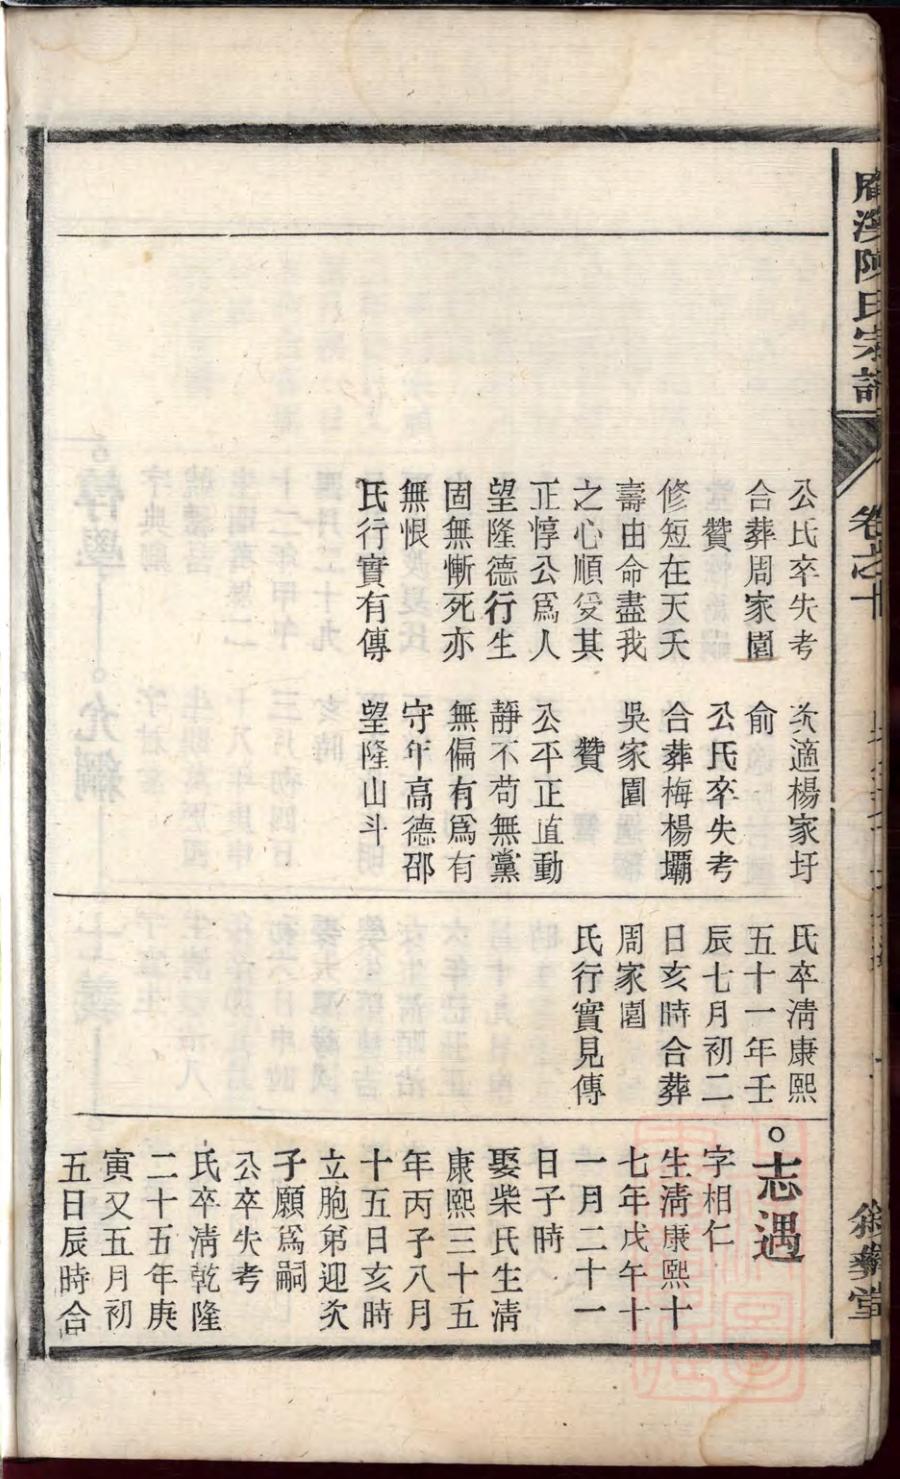 陳氏宗譜
卷之十
敘彝堂
公氏卒失考
合葬周家園
贊
修短在天夭
壽由命盡我
之心順受其
正惇公爲人
望隆德行生
固無慚死亦
無恨
氏行實有傳
次適楊家圩
俞
公氏卒失考
合葬梅楊壩
吳家園
贊
公平正直動
靜不苟無黨
無偏有爲有
守年高德邵
望隆山斗
氏卒淸康熙
五十一年壬
辰七月初二
日亥時合葬
周家園
氏行實見傳
志遇
字相仁
生淸康熙十
七年戊午十
一月二十一
日子時
娶柴氏生淸
康熙三十五
年丙子八月
十五日亥時
立胞弟迎次
子願爲嗣
公卒失考
氏卒淸乾隆
二十五年庚
寅又五月初
五日辰時合